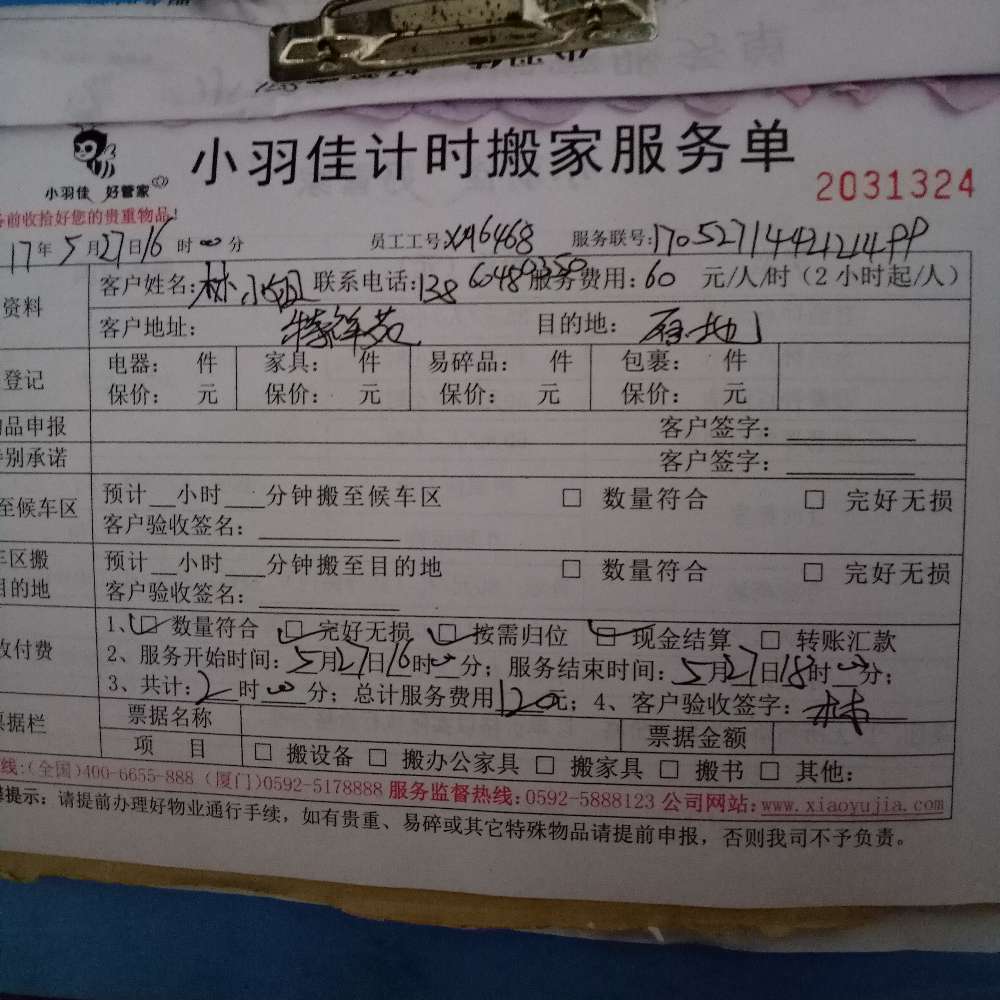 小羽佳计时搬家服务单
小羽佳 好管家
2031324
务前收拾好您的贵重物品!
17年5月27日16时00分 员工工号:XM6468 服务联号:17052714421214PP
资料 客户姓名:林小姐 联系电话:13860480350 服务费用:60 元/人/时(2小时起/人)
客户地址: 特祥苑 目的地: 原地
登记 电器: 件 家具: 件 易碎品: 件 包裹: 件
保价: 元 保价: 元 保价: 元 保价: 元
品申报 客户签字:
别承诺 客户签字:
至候车区 预计__小时___分钟搬至候车区 □ 数量符合 □ 完好无损
客户验收签名:
车区搬 预计__小时___分钟搬至目的地 □ 数量符合 □ 完好无损
目的地 客户验收签名:
收付费 1、☑数量符合 ☑完好无损 ☑按需归位 ☑现金结算 □ 转账汇款
2、服务开始时间:5月27日16时00分;服务结束时间:5月27日18时00分;
3、共计:2时00分;总计服务费用120元;4、客户验收签字:林
票据栏 票据名称 票据金额
项 目 □ 搬设备 □ 搬办公家具 □ 搬家具 □ 搬书 □ 其他:
线:(全国)400-6655-888 (厦门)0592-5178888 服务监督热线:0592-5888123 公司网站:www.xiaoyujia.com
提示:请提前办理好物业通行手续,如有贵重、易碎或其它特殊物品请提前申报,否则我司不予负责。